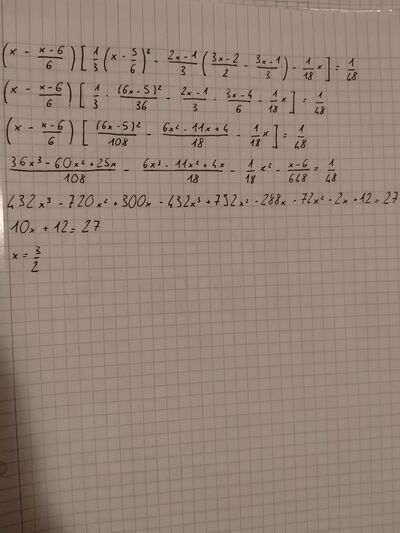 (x - x-6/6) [1/3 (x - 5/6)² - 2x-1/3 (3x-2/2 - 3x-1/3) - 1/18 x] = 1/48
(x - x-6/6) [1/3 · (6x-5)²/36 - 2x-1/3 · 3x-4/6 - 1/18 x] = 1/48
(x - x-6/6) [(6x-5)²/108 - 6x²-11x+4/18 - 1/18 x] = 1/48
36x³-60x²+25x/108 - 6x³-11x²+4x/18 - 1/18 x² - x-6/648 = 1/48
432x³ - 720x² + 300x - 432x³ + 792x² - 288x - 72x² - 2x + 12 = 27
10x + 12 = 27
x = 3/2